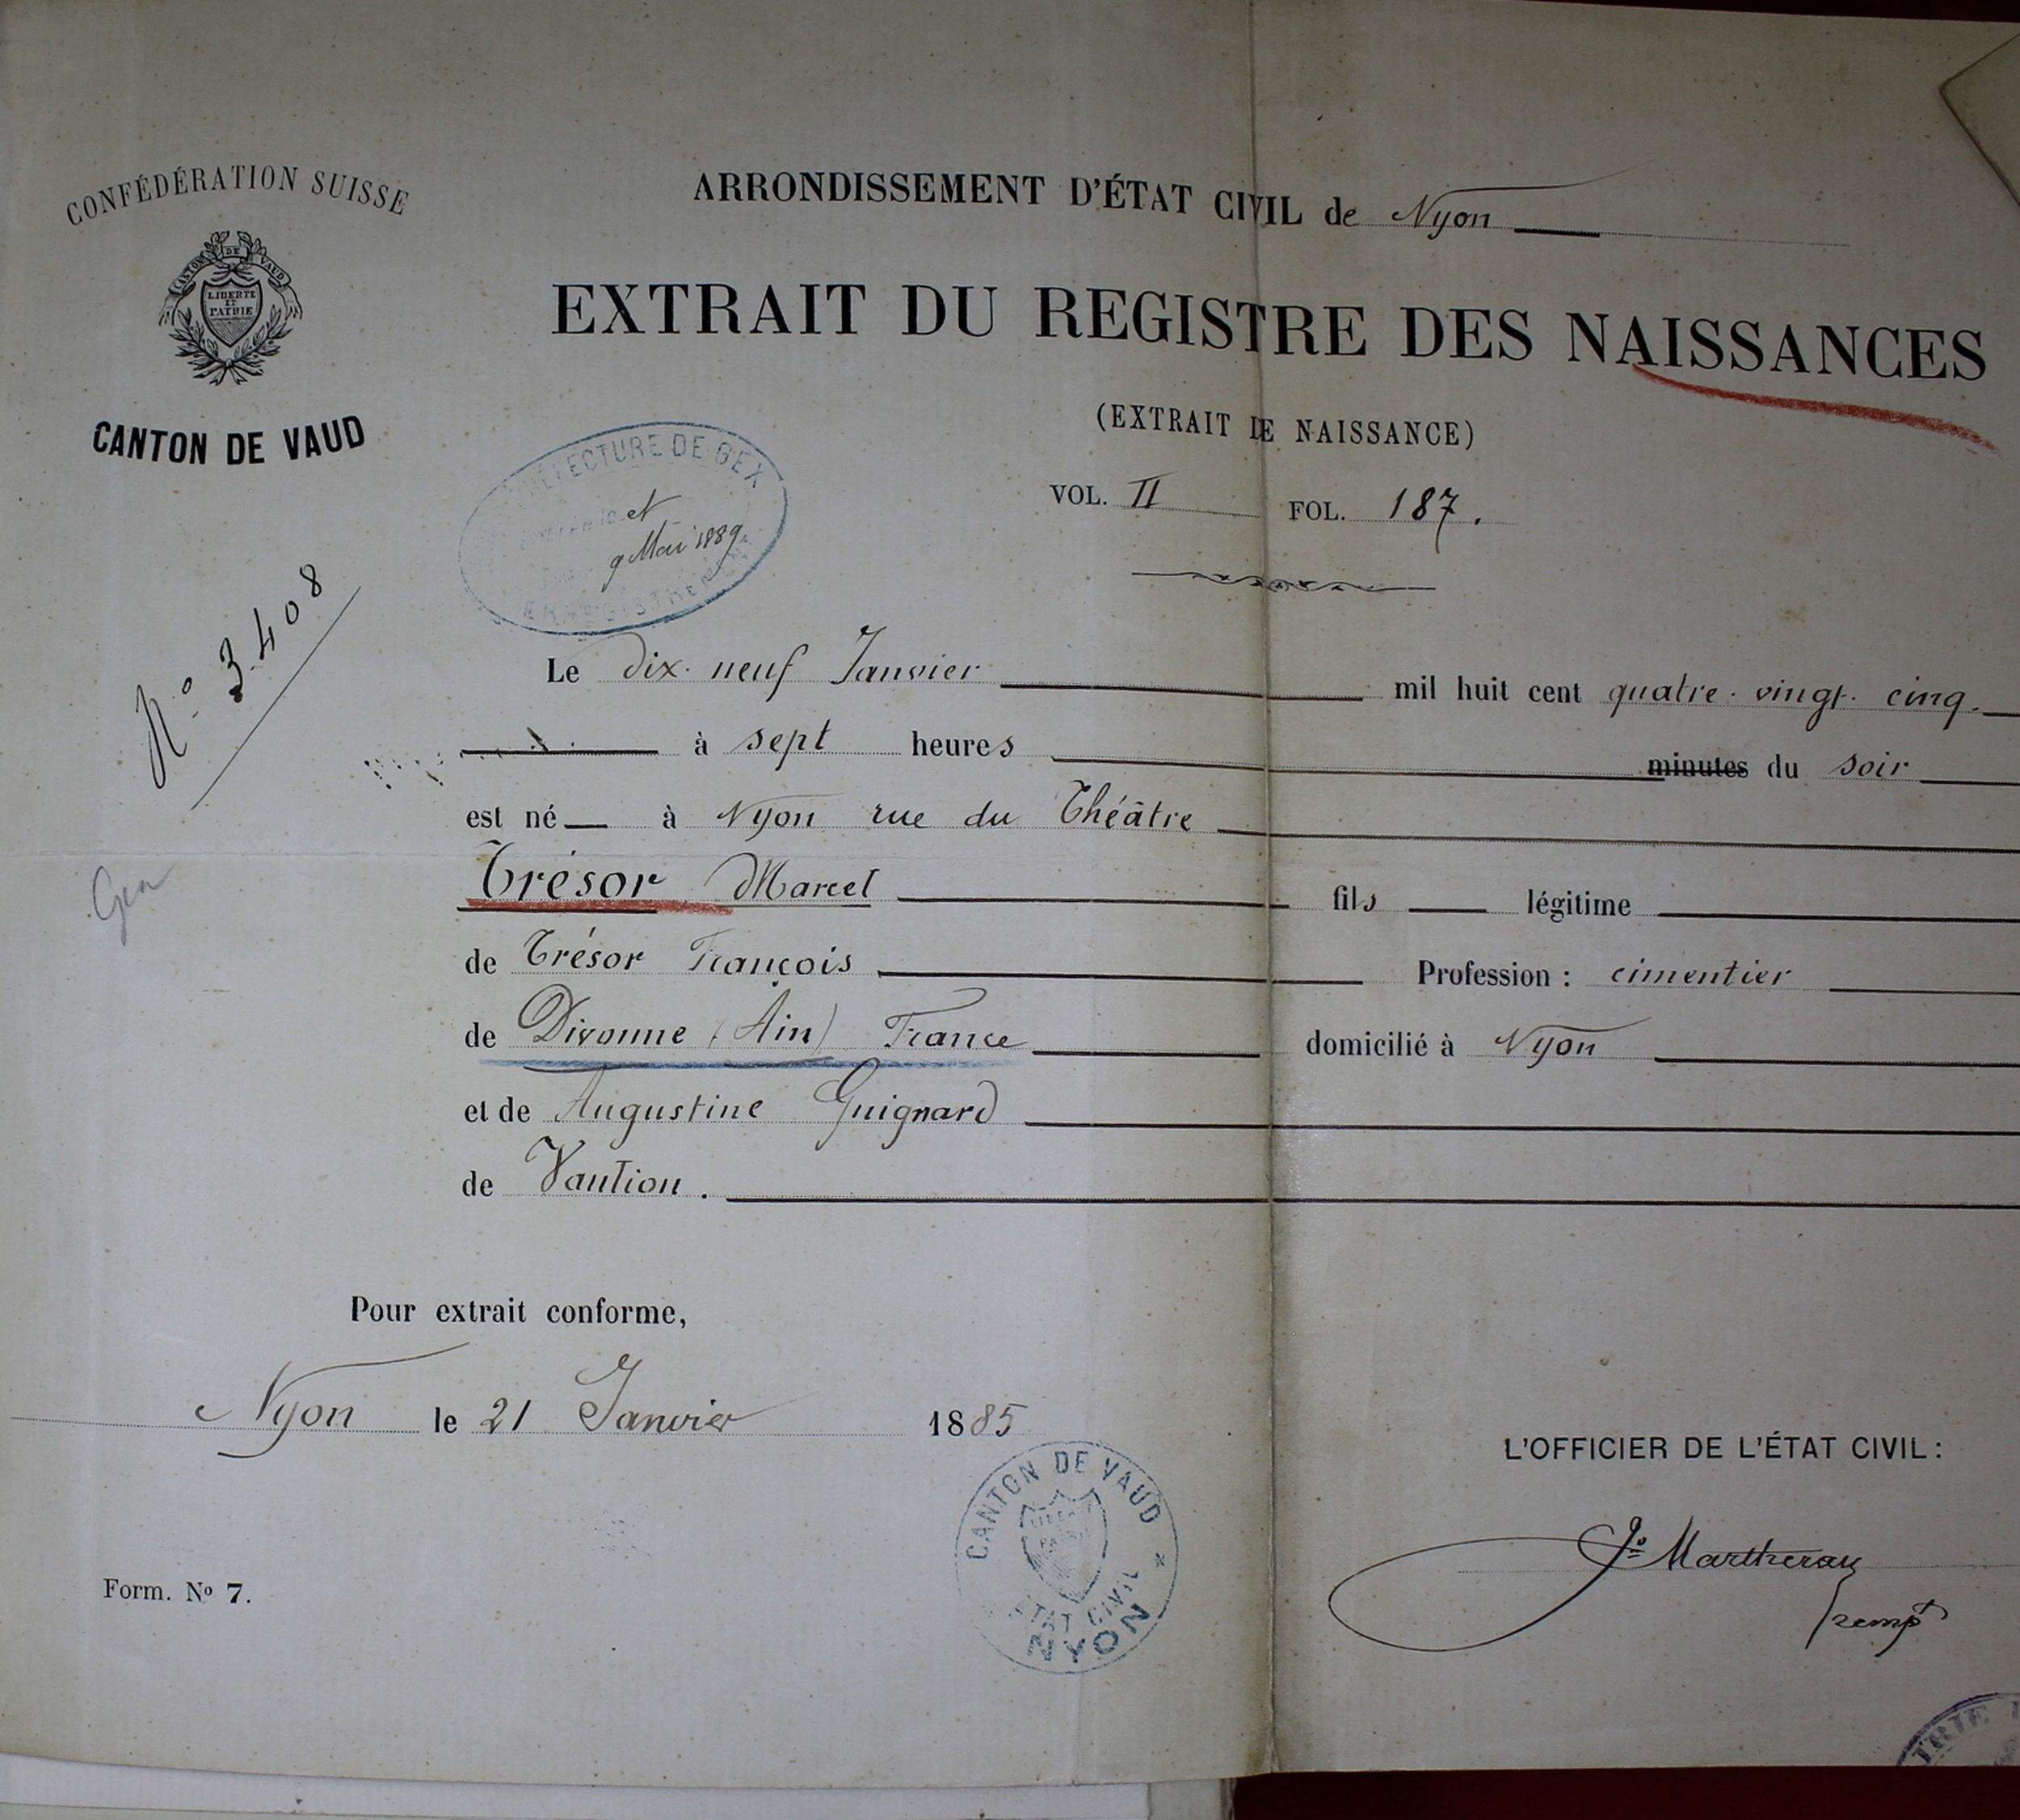 CONFÉDÉRATION SUISSE
CANTON DE VAUD
LIBERTÉ
ET
PATRIE
CANTON DE VAUD
ARRONDISSEMENT D'ÉTAT CIVIL de Nyon
EXTRAIT DU REGISTRE DES NAISSANCES
(EXTRAIT DE NAISSANCE)
VOL. II FOL. 187.
PRÉFECTURE DE GEX
9 Mai 1889
ENREGISTREMENT
N° 3.408
Le dix-neuf Janvier mil huit cent quatre-vingt-cinq
à sept heures minutes du soir
est né à Nyon rue du Théâtre
Trésor Marcel fils légitime
de Trésor François Profession : cimentier
de Divonne (Ain) France domicilié à Nyon
et de Augustine Guignard
de Vaulion.
Pour extrait conforme,
Nyon le 21 Janvier 1885
CANTON DE VAUD
ÉTAT CIVIL
NYON
L'OFFICIER DE L'ÉTAT CIVIL :
Martheray
rempt
Form. N° 7.